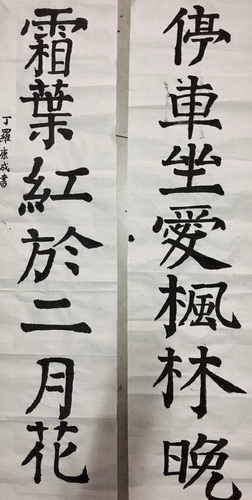 停車坐愛楓林晚
霜葉紅於二月花
丁羅康成書